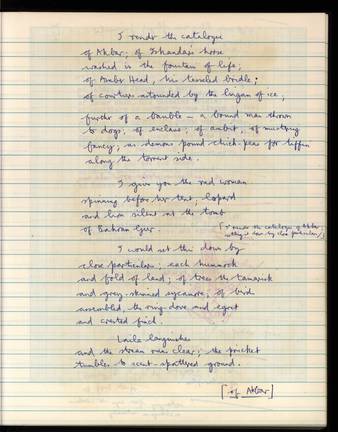 I render the catalogue
of Akbar; of Iskandar's horse
washed in the fountain of life;
of Amber Head, his tasseled bridle;
of courtiers astounded by the lingam of ice;
further of a bauble – a bound man thrown
to dogs; of enclave; of ambit, of
fancy; as demons pound chick-peas for tiffin
along the torrent side.
I give you the mad woman
spinning before her tent; leopard
and lion silent at the tomb
of Bahram Gur.
[I render the catalogue of Akbar;
setting it down by close particulars;]
I would set this down by
close particulars; each hummock
and fold of land; of trees the tamarisk
and grey-skinned sycamore; of bird
assembled, the ring-dove and egret
and crested finch.
Laila languishes
and the stream runs clear; the pricket
tumbles to scent-spattered ground.
[of Akbar]